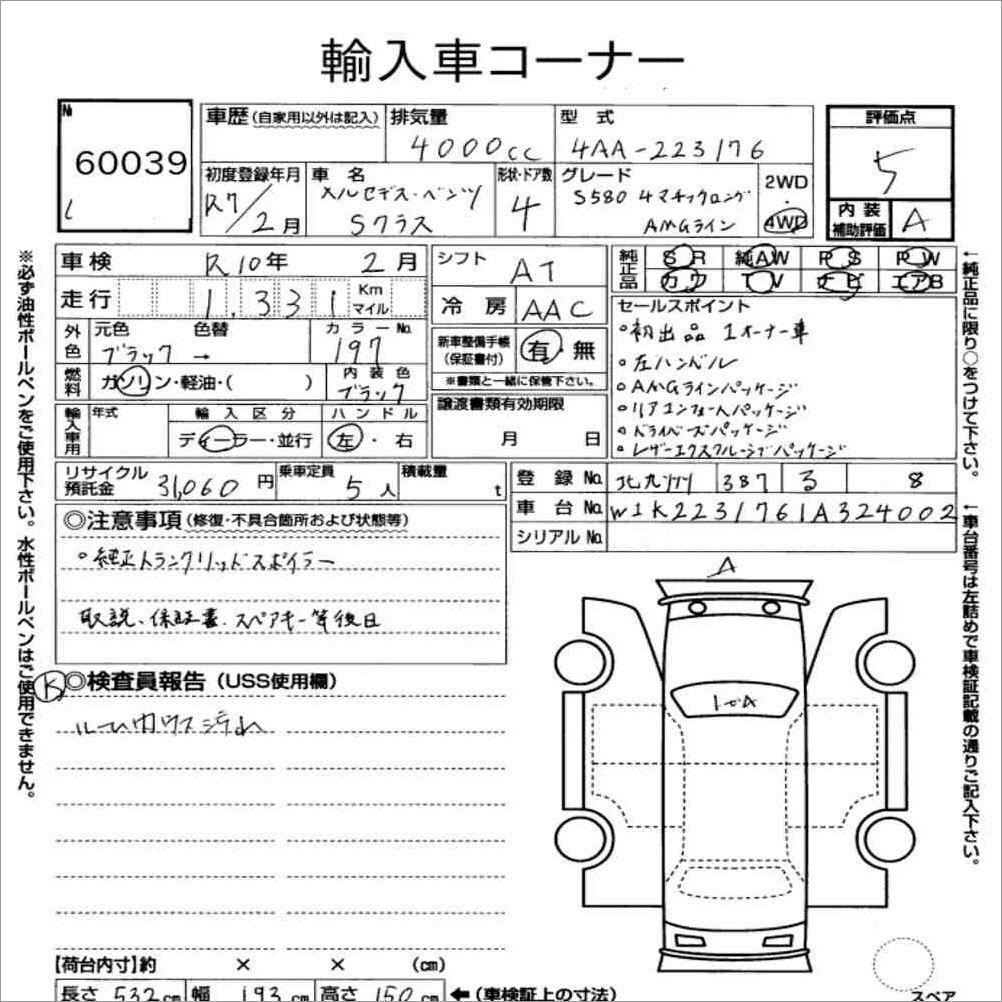 輸入車コーナー
№
60039
車歴 (自家用以外は記入)
排気量
4000cc
型式
4AA-223176
評価点
5
内装
補助評価
A
初度登録年月
R7/2月
車名
メルセデス・ベンツ
Sクラス
形状・ドア数
4
グレード
S580 4マチックロング
AMGライン
2WD
・
4WD
車検 R10年 2月
走行 1,331 Km マイル
外色
元色
ブラック
色替
→
カラーNo.
197
燃料
ガソリン・軽油・( )
内装色
ブラック
輸入車用
年式
輸入区分
ディーラー・並行
ハンドル
左・右
リサイクル
預託金
31,060円
乗車定員
5人
積載量
t
シフト
AT
冷房
AAC
新車整備手帳
(保証書付)
有・無
※書類と一緒に保管下さい。
譲渡書類有効期限
月 日
純正品
SR 純AW PS PW
カワ TV ナビ エアB
セールスポイント
○初出品 1オーナー車
○左ハンドル
○AMGラインパッケージ
○リアコンフォートパッケージ
○ドライバーズパッケージ
○レザーエクスクルーシブパッケージ
登録No. 北九州 387 る 8
車台No. W1K2231761A324002
シリアルNo.
◎注意事項 (修復・不具合箇所および状態等)
○純正トランクリッドスポイラー
取説、保証書、スペアキー等後日
K
◎検査員報告 (USS使用欄)
A
【荷台内寸】約 × × (cm)
長さ 532cm 幅 193cm 高さ 150cm ←(車検証上の寸法)
スペア
※必ず油性ボールペンをご使用下さい。水性ボールペンはご使用できません。
←純正品に限り○をつけて下さい。
←車台番号は左詰めで車検証記載の通りご記入下さい。